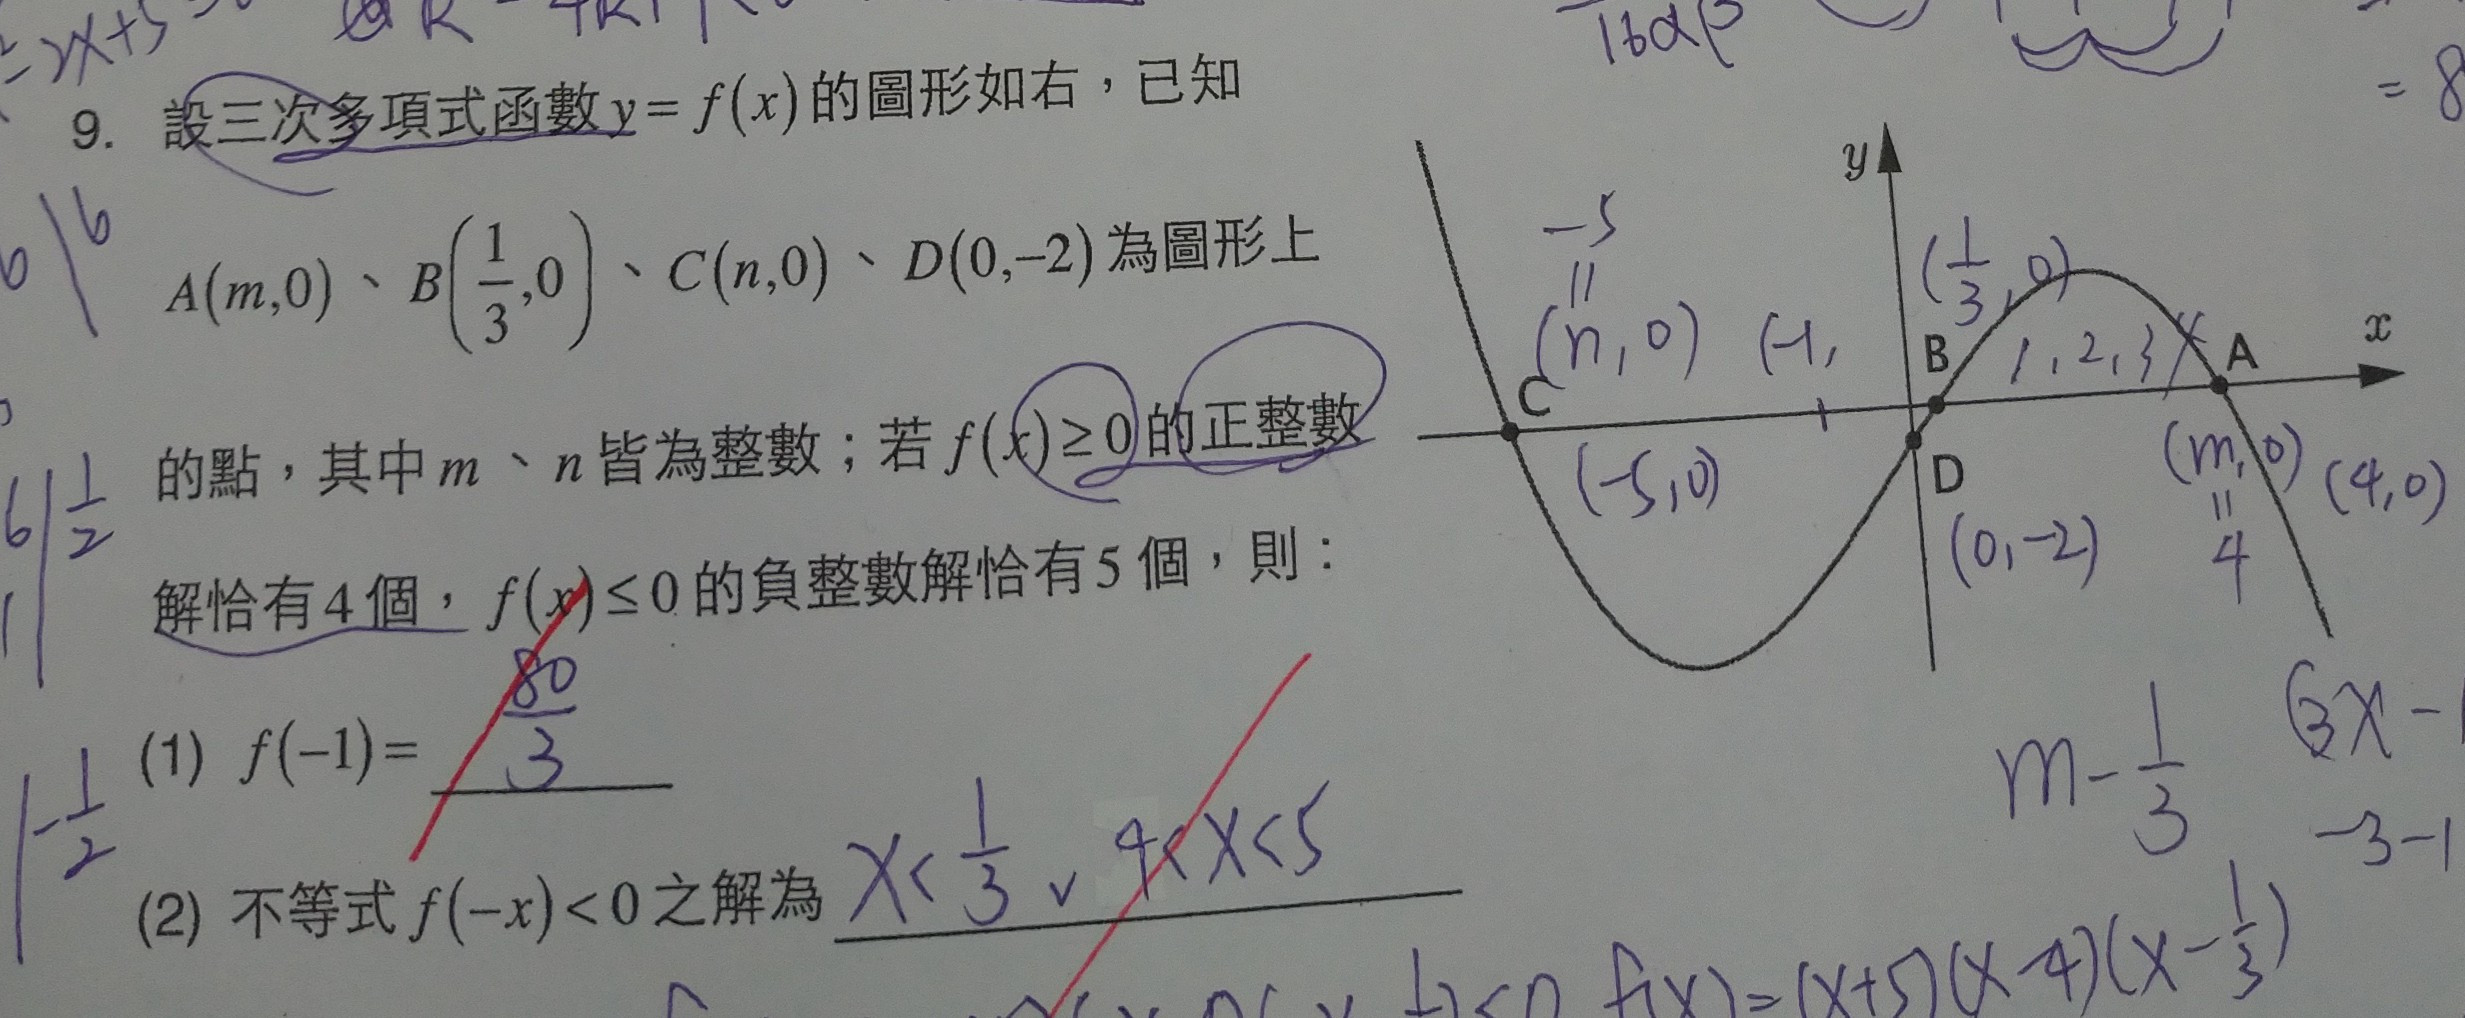 -2x+5
16αβ
= 8
9. 設三次多項式函數 y = f(x) 的圖形如右，已知
A(m,0)、B(1/3,0)、C(n,0)、D(0,-2) 為圖形上
的點，其中 m、n 皆為整數；若 f(x) ≥ 0 的正整數
解恰有 4 個，f(x) ≤ 0 的負整數解恰有 5 個，則：
(1) f(-1) = 80/3
(2) 不等式 f(-x) < 0 之解為 x < 1/3 ∨ 4 < x < 5
6 | 6
6 | 1/2
1
| -1/2
y
x
-5
=
(n,0)
(-1,
(1/3,0)
1,2,3,
C
B
A
D
(-5,0)
(0,-2)
(m,0)
=
4
(4,0)
m - 1/3
(3x-1
-3-1
f(x) = (x+5)(x-4)(x-1/3)